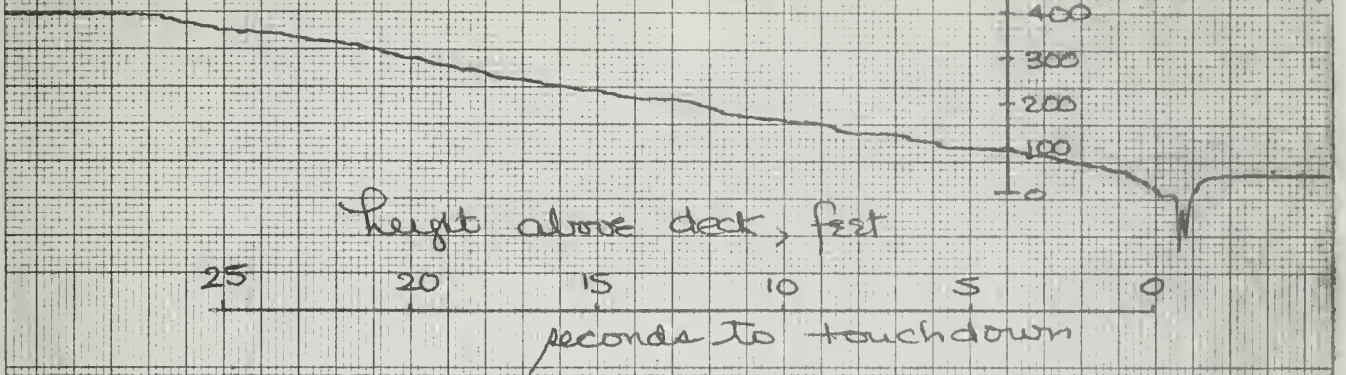 400
300
200
100
0
height above deck, feet
25 20 15 10 5 0
seconds to touchdown